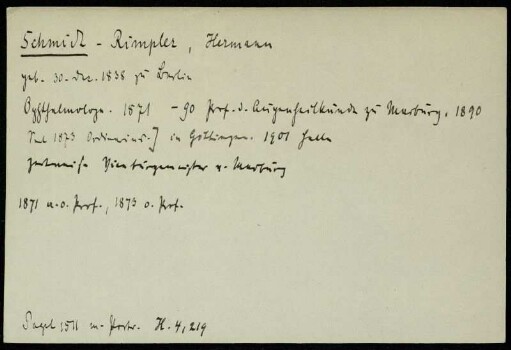 Schmidt-Rimpler, Hermann
geb. 30. Dez. 1838 zu Berlin
Ophthalmologe. 1871 - 90 Prof. d. Augenheilkunde zu Marburg, 1890
[seit 1873 Ordinarius] in Göttingen. 1901 Halle
zeitweise Vizebürgermeister v. Marburg
1871 a.o. Prof., 1873 o. Prof.
Pagel 1511 m. Portr. H. 4,219